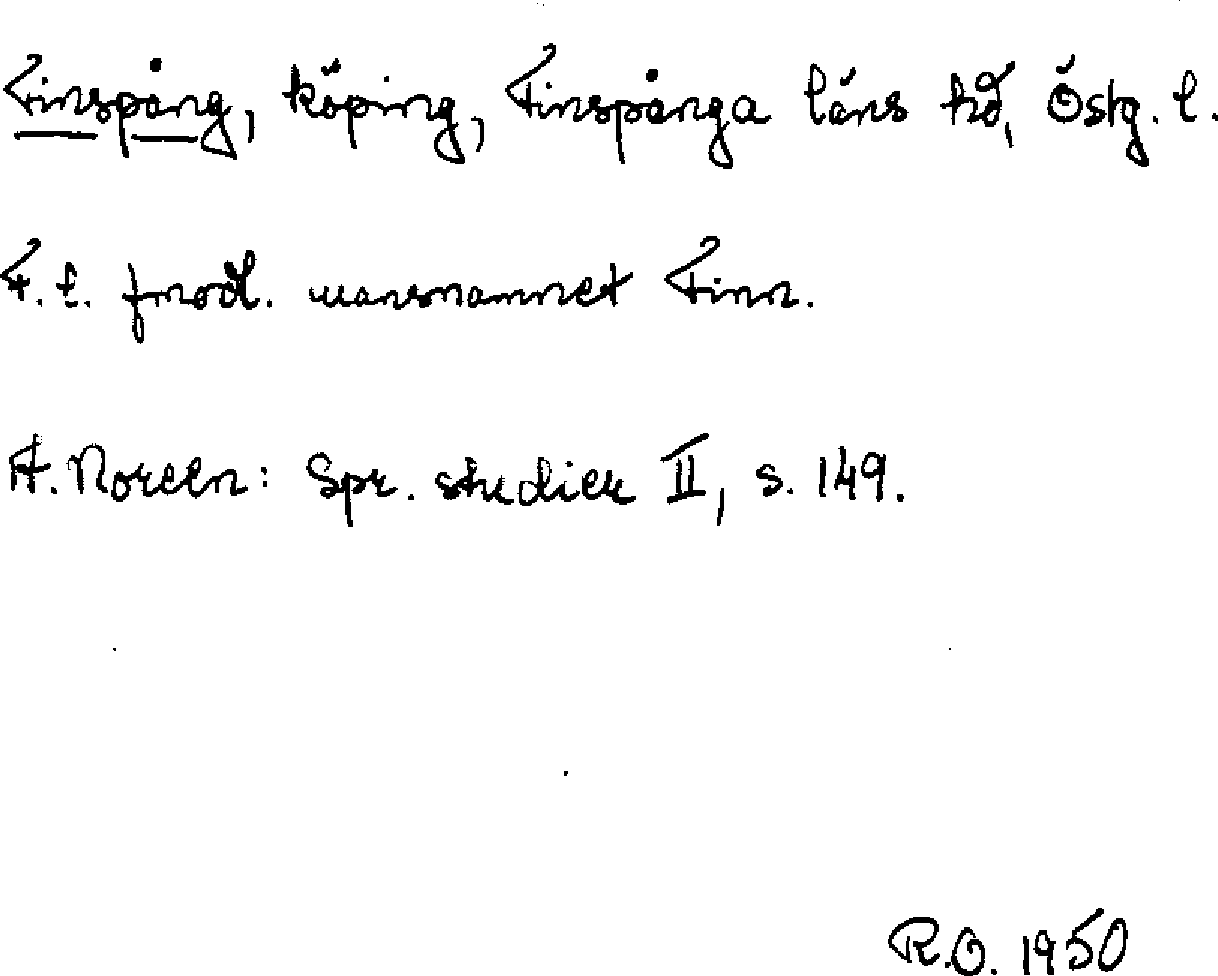 Finspång, köping, Finspånga läns hd, Östg. l.
F. l. fnord. mansnamnet Finn.
A. Noreen: Spr. studier II, s. 149.
R.O. 1950